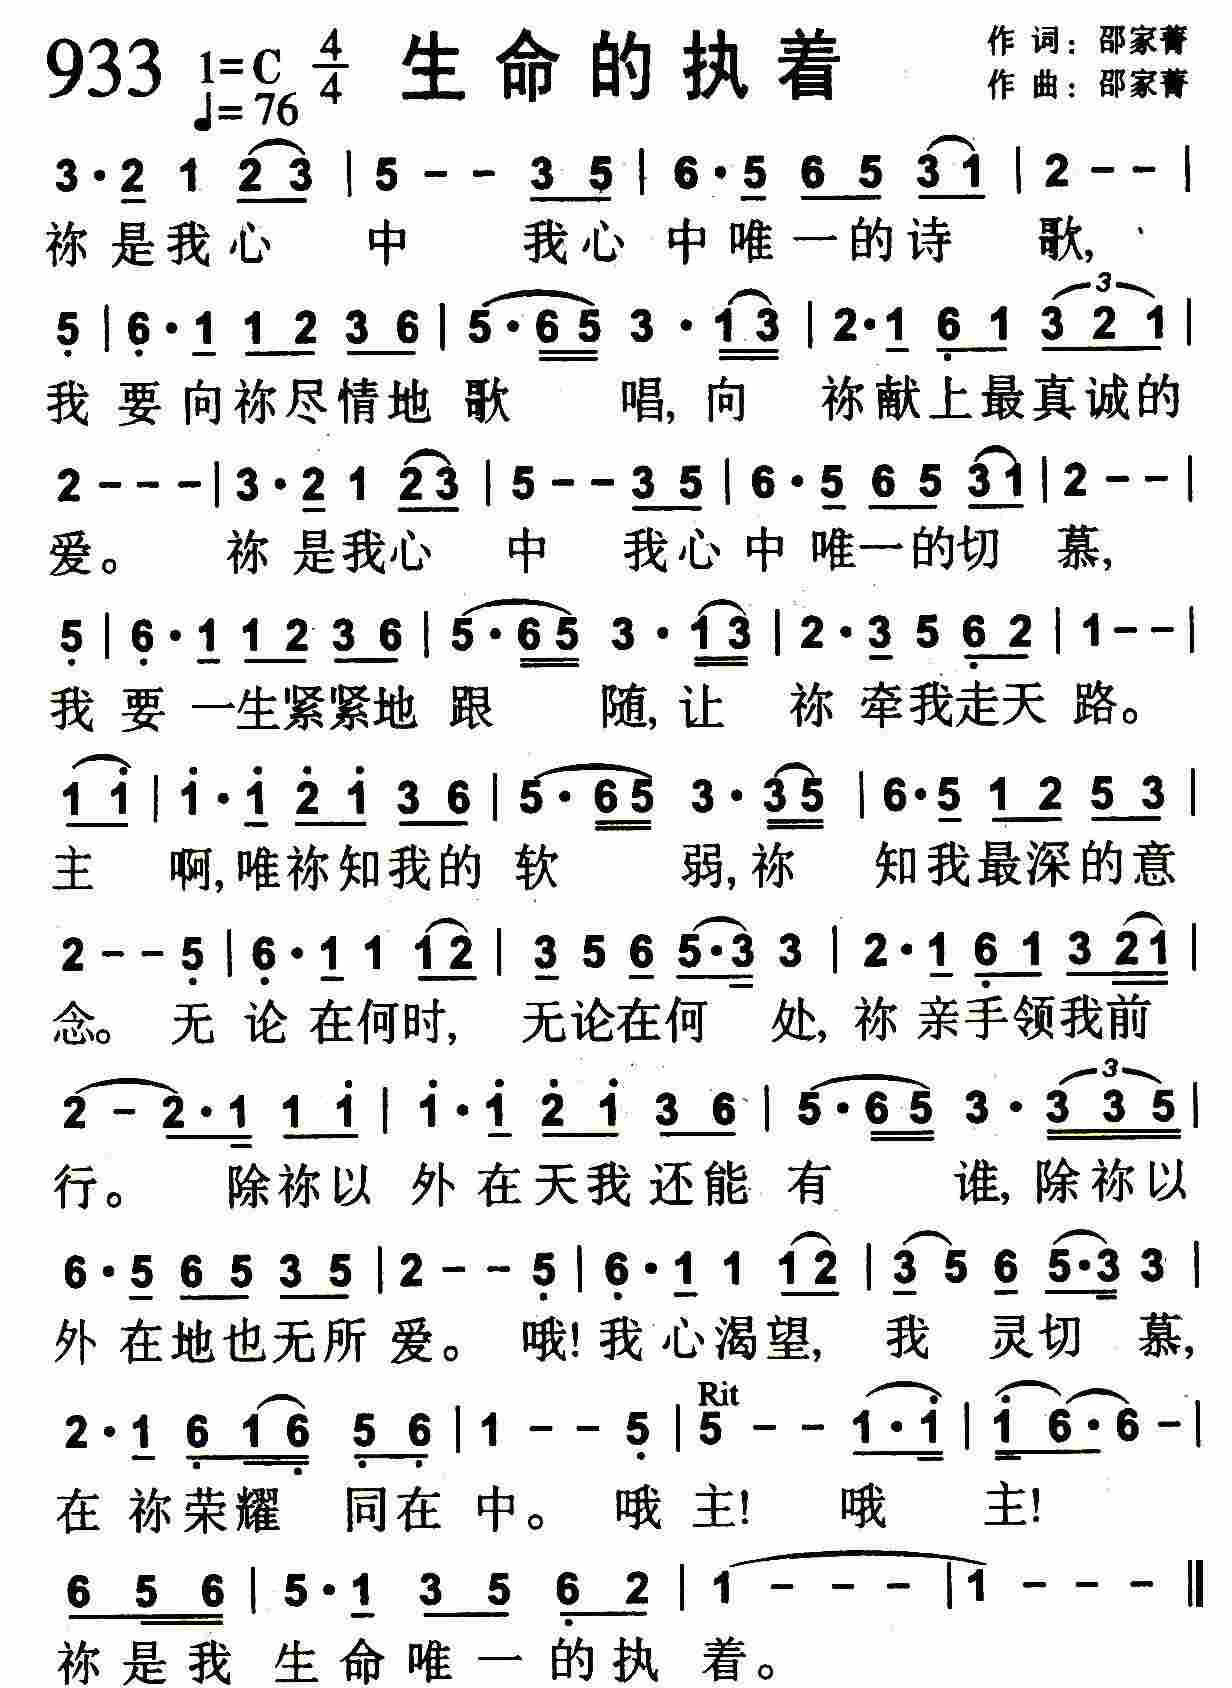 933 1=C 4/4 生命的执着 作词：邵家菁
♩=76 作曲：邵家菁
3·2 1 2 3 | 5 - - 3 5 | 6·5 6 5 3 1 | 2 - - |
祢是我心 中 我心中唯一的诗 歌,
5 | 6·1 1 2 3 6 | 5·6 5 3·1 3 | 2·1 6 1 3 2 1 |
我 要向祢尽情地歌 唱,向 祢献上最真诚的
2 - - - | 3·2 1 2 3 | 5 - - 3 5 | 6·5 6 5 3 1 | 2 - - |
爱。 祢是我心 中 我心中唯一的切 慕,
5 | 6·1 1 2 3 6 | 5·6 5 3·1 3 | 2·3 5 6 2 | 1 - - |
我 要一生紧紧地跟 随,让 祢牵我走天路。
1 1 | 1·1 2 1 3 6 | 5·6 5 3·3 5 | 6·5 1 2 5 3 |
主 啊,唯祢知我的软 弱,祢 知我最深的意
2 - - 5 | 6·1 1 1 2 | 3 5 6 5·3 3 | 2·1 6 1 3 2 1 |
念。无 论在何时, 无论在何 处,祢亲手领我前
2 - 2·1 1 1 | 1·1 2 1 3 6 | 5·6 5 3·3 3 5 |
行。 除祢以 外在天我还能有 谁,除祢以
6·5 6 5 3 5 | 2 - - 5 | 6·1 1 1 2 | 3 5 6 5·3 3 |
外在地也无所爱。 哦!我心渴望, 我 灵切 慕,
Rit
2·1 6 1 6 5 6 | 1 - - 5 | 5 - - 1·1 | 1 6·6 - |
在祢荣耀 同在中。 哦主! 哦 主!
6 5 6 | 5·1 3 5 6 2 | 1 - - - | 1 - - - ‖
祢是我 生命唯一的执 着。